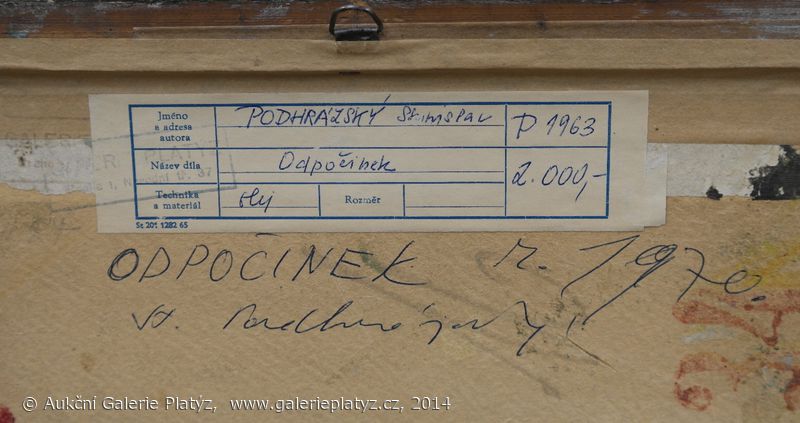 Jméno
a adresa
autora
PODHRÁZSKÝ Stanislav
P 1963
Název díla
Odpočinek
2.000,-
Technika
a materiál
olej
Rozměr
St 201 1282 65
ODPOČINEK r. 1970.
St. Podhrázský
© Aukční Galerie Platýz, www.galerieplatyz.cz, 2014